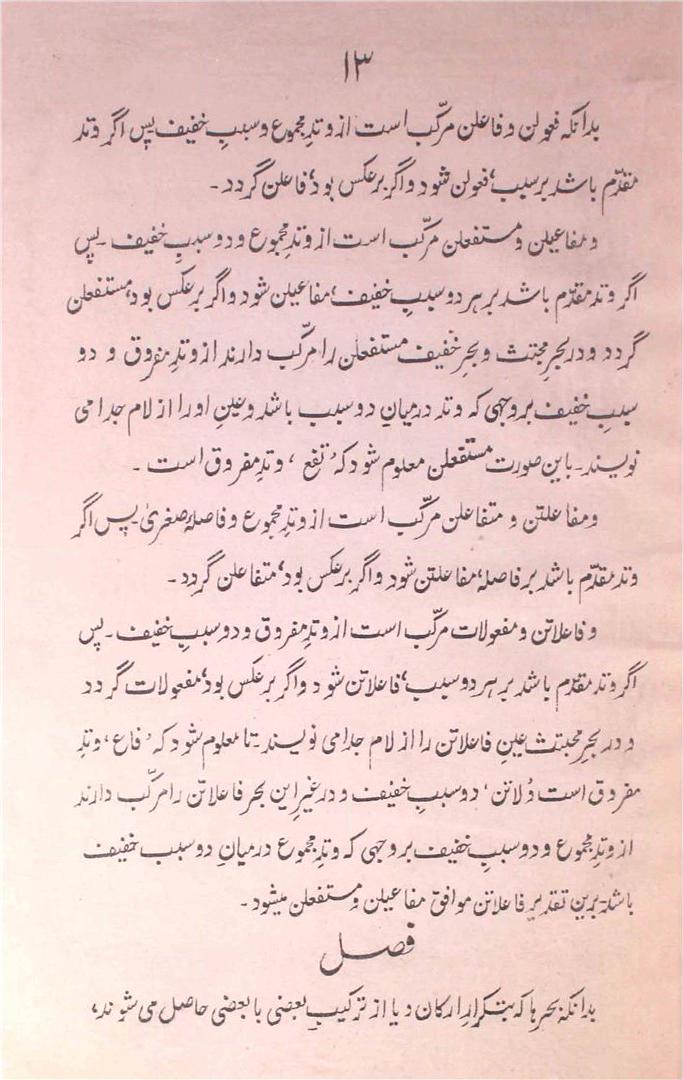 ۱۳
بدانکہ فعولن و فاعلن مرکّب است از وتدِ مجموع و سببِ خفیف پس اگر وتد
مقدّم باشد بر سبب، فعولن شود و اگر برعکس بود، فاعلن گردد۔
و مفاعیلن و مستفعلن مرکّب است از وتدِ مجموع و دو سببِ خفیف۔ پس
اگر وتد مقدّم باشد بر ہر دو سببِ خفیف، مفاعیلن شود و اگر برعکس بود، مستفعلن
گردد و در بحرِ مجتث و بحرِ خفیف مستفعلن را مرکّب دارند از وتدِ مفروق و دو
سببِ خفیف بروجہی کہ وتد درمیانِ دو سبب باشد و عینِ او را از لام جدا می
نویسند۔ باین صورت مستفعلن معلوم شود کہ ’تفع‘ وتدِ مفروق است۔
و مفاعلتن و متفاعلن مرکّب است از وتدِ مجموع و فاصلۂ صغریٰ۔ پس اگر
وتد مقدّم باشد بر فاصلہ، مفاعلتن شود و اگر برعکس بود، متفاعلن گردد۔
و فاعلاتن و مفعولات مرکّب است از وتدِ مفروق و دو سببِ خفیف۔ پس
اگر وتد مقدّم باشد بر ہر دو سبب، فاعلاتن شود و اگر برعکس بود، مفعولات گردد
و در بحرِ مجتث عینِ فاعلاتن را از لام جدا می نویسند۔ تا معلوم شود کہ ’فاع‘ وتدِ
مفروق است و ’لاتن‘ دو سببِ خفیف و در غیرِ این بحر فاعلاتن را مرکّب دارند
از وتدِ مجموع و دو سببِ خفیف بروجہی کہ وتدِ مجموع درمیانِ دو سبب خفیف
باشد۔ برین تقدیر فاعلاتن موافق مفاعیلن و مستفعلن میشود۔
فصل
بدانکہ بحرہا کہ بتکرارِ ارکان و یا از ترکیبِ بعضی با بعضی حاصل می شوند،